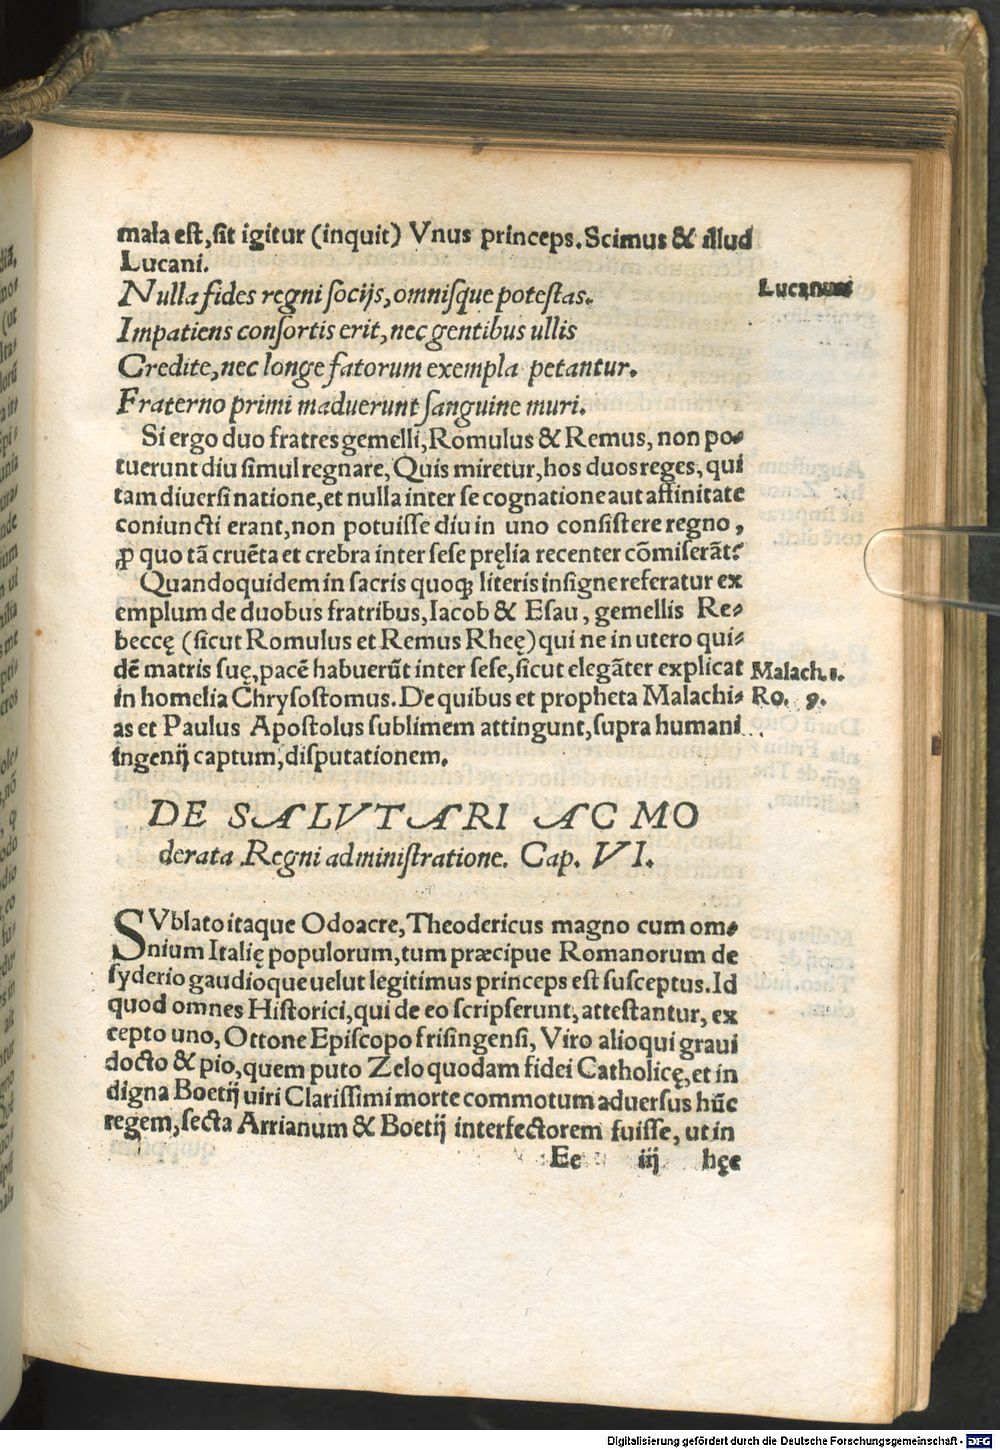 mala est, sit igitur (inquit) Vnus princeps. Scimus & illud
Lucani.
Nulla fides regni socijs, omnisque potestas.
Lucanus
Impatiens consortis erit, nec gentibus ullis
Credite, nec longe fatorum exempla petantur.
Fraterno primi maduerunt sanguine muri.
Si ergo duo fratres gemelli, Romulus & Remus, non po-
tuerunt diu simul regnare, Quis miretur, hos duos reges, qui
tam diuersi natione, et nulla inter se cognatione aut affinitate
coniuncti erant, non potuisse diu in uno consistere regno,
ꝓ quo tā cruēta et crebra inter sese pręlia recenter cōmiserāt?
Quandoquidem in sacris quoqꝫ literis insigne referatur ex
emplum de duobus fratribus, Iacob & Esau, gemellis Re-
beccę (sicut Romulus et Remus Rheę) qui ne in utero qui-
dē matris suę, pacē habuerūt inter sese, sicut elegāter explicat
Malach. 1.
in homelia Chrysostomus. De quibus et propheta Malachi-
Ro. 9.
as et Paulus Apostolus sublimem attingunt, supra humani
ingenij captum, disputationem.
DE SALVTARI AC MO
derata Regni administratione. Cap. VI.
SVblato itaque Odoacre, Theodericus magno cum om-
nium Italię populorum, tum præcipue Romanorum de
syderio gaudioque uelut legitimus princeps est susceptus. Id
quod omnes Historici, qui de eo scripserunt, attestantur, ex
cepto uno, Ottone Episcopo frisingensi, Viro alioqui graui
docto & pio, quem puto Zelo quodam fidei Catholicę, et in
digna Boetij uiri Clarissimi morte commotum aduersus hūc
regem, secta Arrianum & Boetij interfectorem fuisse, ut in
Ee iij hęc
Digitalisierung gefördert durch die Deutsche Forschungsgemeinschaft - DFG